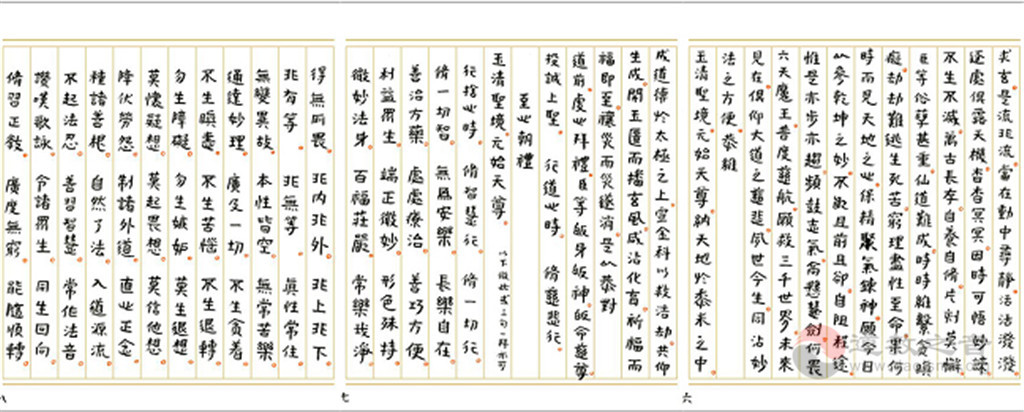 求玄是流非流當在動中尋靜活活潑潑
逐處俱露天機杳杳冥冥因時可悟妙諦
不生不滅萬古長存自養自修片刻莫懈
臣等俗孽甚重仙道難成時時維繫貪瞋
癡劫劫難逃生死苦窮理盡性至命果何
時而見天地之心保精聚氣鍊神願今日
以參乾坤之妙不欺且前且卻自阻程途
惟是亦步亦趨頻鼓志氣高懸慧劍何畏
六天魔王普度慈航願救三千世界未來
見在俱仰大道之慈悲夙世今生同沾妙
法之方便恭維
玉清聖境元始天尊納天地於黍米之中
六
成道德於太極之上靈金科以救浩劫共仰
生成開玉匱而播玄風咸沾化育祈福而
福即至禳災而災遂消是以恭對
道前虔心拜禮臣等皈身皈神皈命慈尊
投誠上聖 行道心時 修慈悲行
至心朝禮
玉清聖境元始天尊 以下做此或三句一拜亦可
行捨心時 修智慧行 修一切行
修一切智 無為安樂 長樂自在
善治方藥 處處療治 善巧方便
利益眾生 端正微妙 形色殊特
微妙法身 百福莊嚴 常樂我淨
七
得無所畏 非內非外 非上非下
非有等 非無等 真性常住
無變異故 本性皆空 無常苦樂
通達妙理 廣及一切 不生貪着
不生瞋恚 不生苦惱 不生退轉
勿生障礙 勿生嫉妬 莫生退想
莫懷疑想 莫起畏想 莫信他想
降伏勞怨 制諸外道 直心正念
種諸善根 自然了法 入道源流
不起法忍 善習智慧 常作法音
讚嘆歌詠 令諸眾生 同生回向
修習正教 廣度無窮 能隨順轉
八